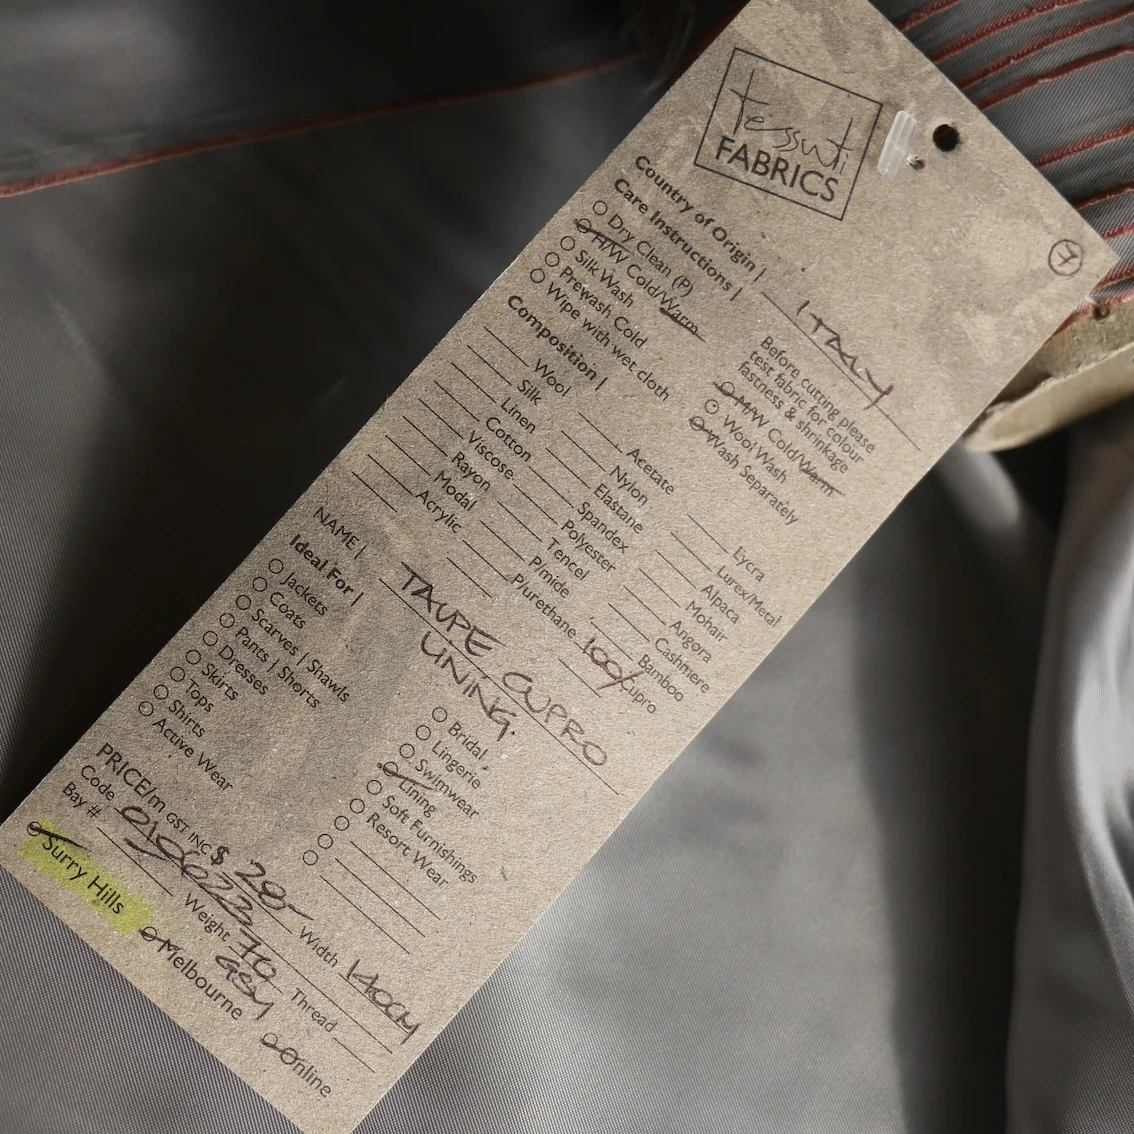 tessuti
FABRICS
7
Country of Origin | ITALY
Care Instructions |
Dry Clean (P)
H/W Cold/Warm
Silk Wash
Prewash Cold
Wipe with wet cloth
Before cutting please
test fabric for colour
fastness & shrinkage
M/W Cold/Warm
Wool Wash
Wash Separately
Composition |
Wool
Silk
Linen
Cotton
Viscose
Rayon
Modal
Acrylic
Acetate
Nylon
Elastane
Spandex
Polyester
Tencel
P/mide
P/urethane
Lycra
Lurex/Metal
Alpaca
Mohair
Angora
Cashmere
Bamboo
100% Cupro
NAME | TAUPE CUPRO
LINING.
Ideal For |
Jackets
Coats
Scarves | Shawls
Pants | Shorts
Dresses
Skirts
Tops
Shirts
Active Wear
Bridal
Lingerie
Swimwear
Lining
Soft Furnishings
Resort Wear
PRICE/m GST INC $ 20- Width 140CM
Code Weight 70 GSM Thread
Bay #
Surry Hills Melbourne Online